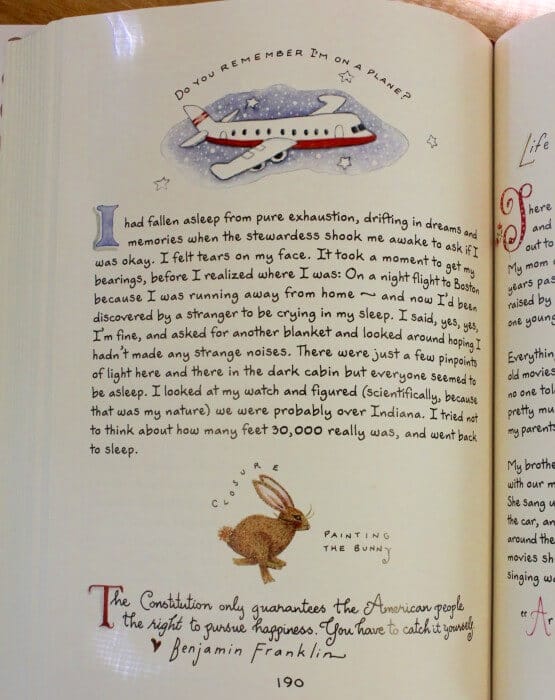 DO YOU REMEMBER I'M ON A PLANE?
I had fallen asleep from pure exhaustion, drifting in dreams and
memories when the stewardess shook me awake to ask if I
was okay. I felt tears on my face. It took a moment to get my
bearings, before I realized where I was: On a night flight to Boston
because I was running away from home ~ and now I'd been
discovered by a stranger to be crying in my sleep. I said, yes, yes,
I'm fine, and asked for another blanket and looked around hoping I
hadn't made any strange noises. There were just a few pinpoints
of light here and there in the dark cabin but everyone seemed to
be asleep. I looked at my watch and figured (scientifically, because
that was my nature) we were probably over Indiana. I tried not
to think about how many feet 30,000 really was, and went back
to sleep.
CLOSURE
PAINTING
THE BUNNY
The Constitution only guarantees the American people
the right to pursue happiness. You have to catch it yourself.
♥ Benjamin Franklin
190
Life
There
and
out to
My mom
years pas
raised by
one young
Everything
old movies
no one tol
pretty mu
my parent
My brothe
with our m
She sang u
the car, an
around the
movies sh
singing wa
"Ar